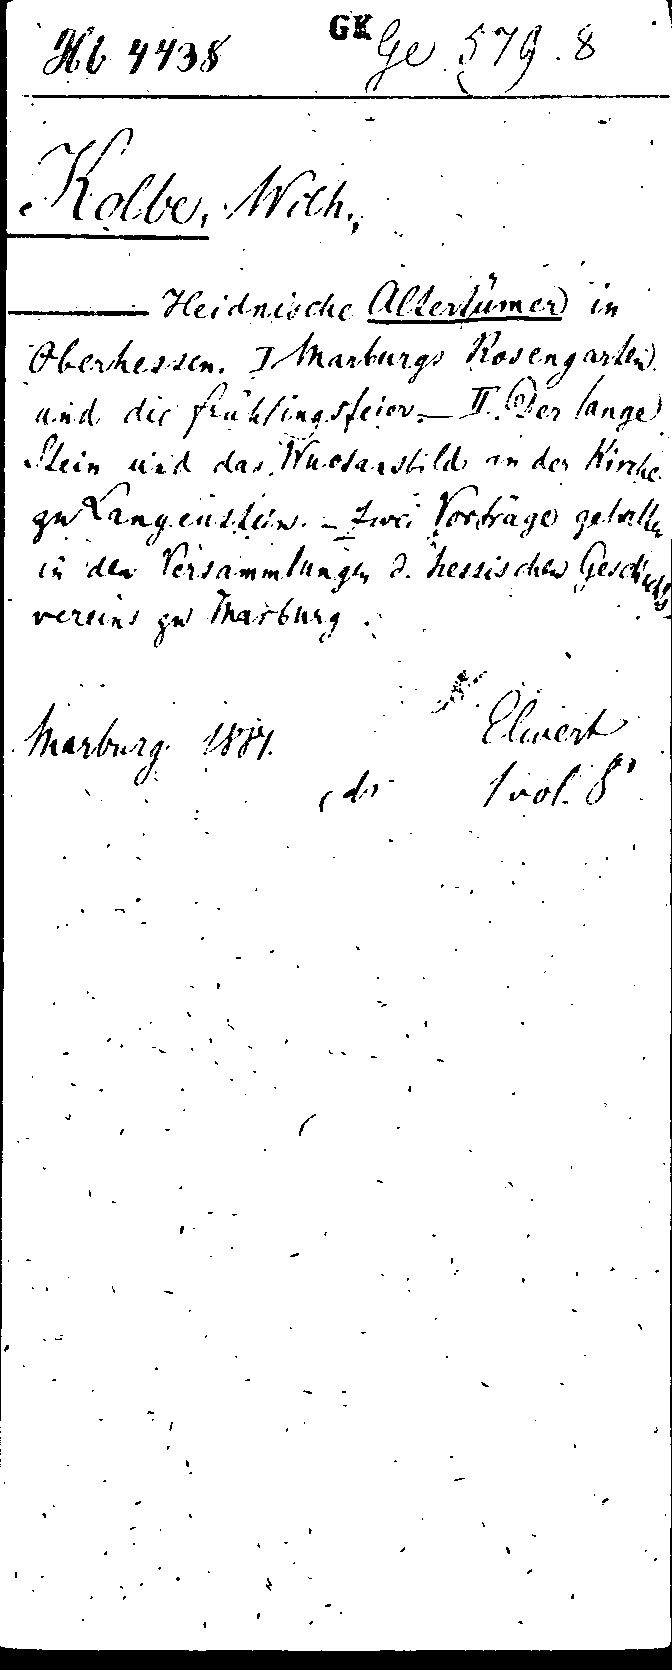 Hb 4438 GK Ge 579.8
Kolbe, Wilh.,
Heidnische Altertümer in
Oberhessen. I Marburgs Rosengarten
und die Frühlingsfeier. — II. Der lange
Stein und das Wuotansbild an der Kirche
zu Langenstein. — Zwei Vorträge gehalten
in den Versammlungen d. hessischen Geschichts
vereins zu Marburg.
Marburg 1881. Elwert
1 vol. 8°